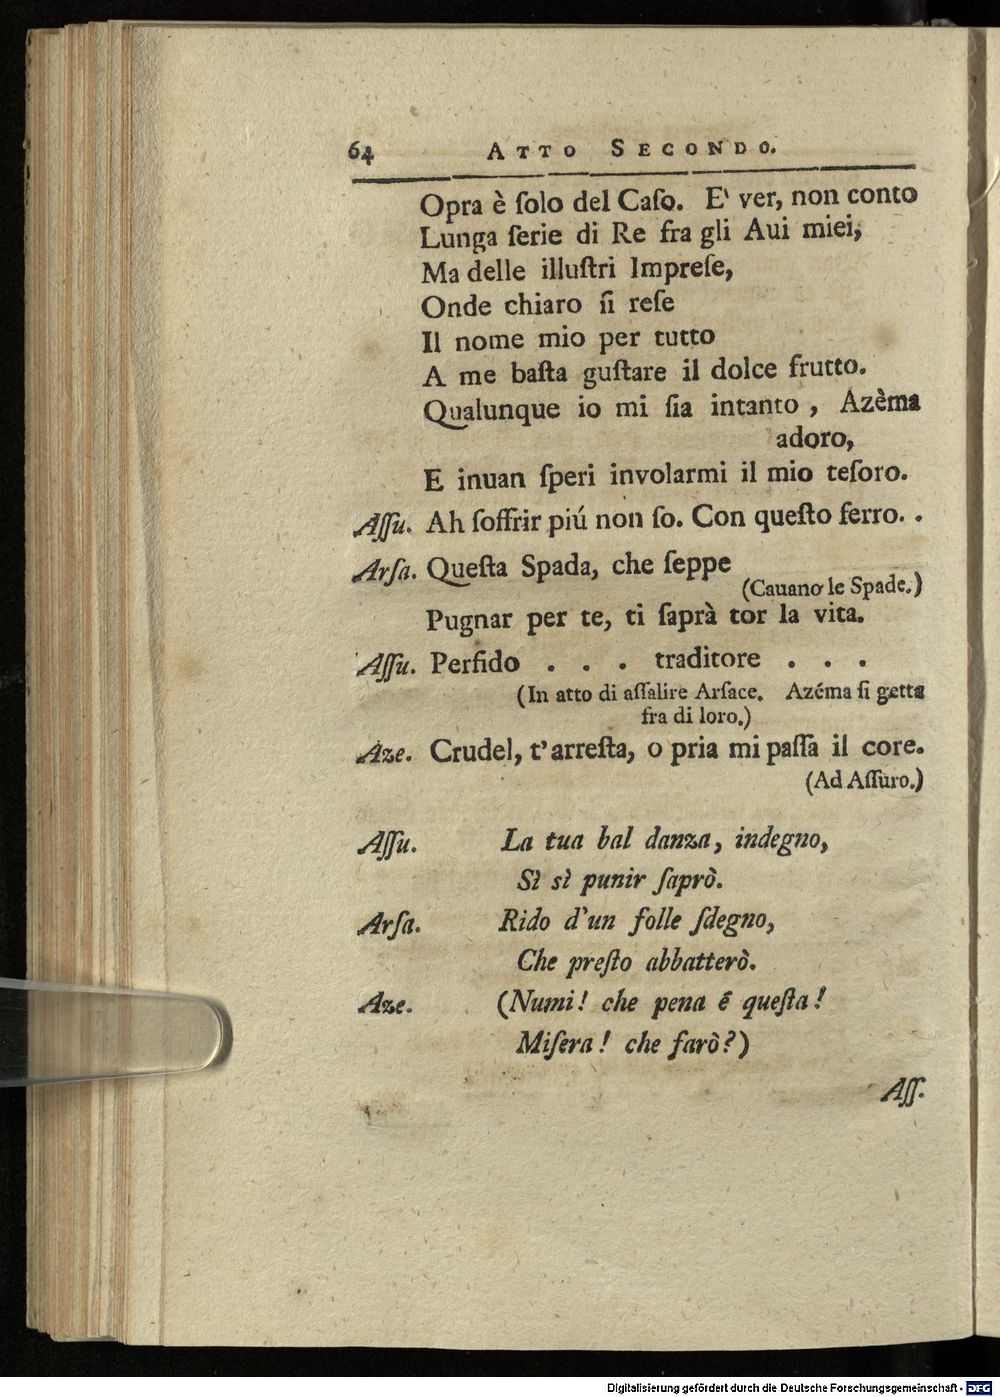 64 ATTO SECONDO.
Opra è ſolo del Caſo. E' ver, non conto
Lunga ſerie di Re fra gli Aui miei,
Ma delle illuſtri Impreſe,
Onde chiaro ſi reſe
Il nome mio per tutto
A me baſta guſtare il dolce frutto.
Qualunque io mi ſia intanto, Azèma
adoro,
E inuan ſperi involarmi il mio teſoro.
Aſſu. Ah ſoffrir piú non ſo. Con queſto ferro. .
Arſa. Queſta Spada, che ſeppe
(Cauano le Spade.)
Pugnar per te, ti ſaprà tor la vita.
Aſſu. Perfido . . . traditore . . .
(In atto di aſſalire Arſace. Azéma ſi getta
fra di loro.)
Aze. Crudel, t'arreſta, o pria mi paſſa il core.
(Ad Aſſuro.)
Aſſu. La tua bal danza, indegno,
Sì sì punir ſaprò.
Arſa. Rido d'un folle ſdegno,
Che preſto abbatterò.
Aze. (Numi! che pena é queſta!
Miſera! che farò?)
Aſſ.
Digitalisierung gefördert durch die Deutsche Forschungsgemeinschaft - DFG